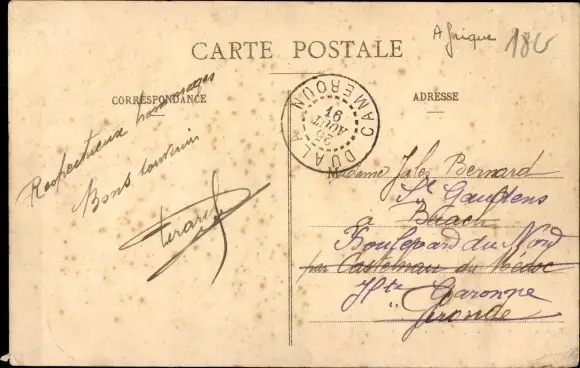 Afrique 180
CARTE POSTALE
CORRESPONDANCE
Respectueux hommages
Bons souvenirs
ADRESSE
DUALA CAMEROUN
25
AOUT
16
Madame Jules Bernard
St Gaudens
à Brach
Boulevard du Nord
par Castelnau du Médoc
Hte Garonne
Gironde